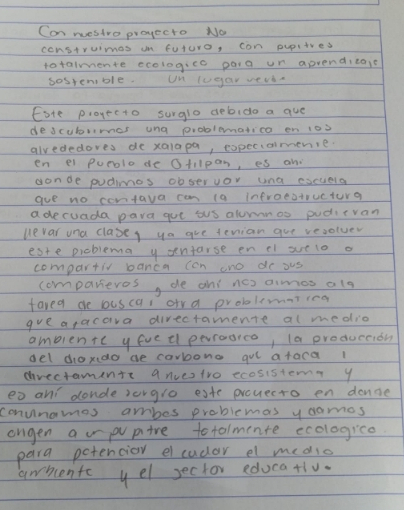 Con nuestro proyecto No
construimos un futuro, con pupitres
totalmente ecologico para un aprendizaje
sostenible. Un lugar verde
Este proyecto surgio debido a que
descubrimos una problematica en los
alrededores de xalapa, especialmente
en el Pueblo de Otilpan, es ahi
donde pudimos observar una escuela
que no contava con la infraestructura
adecuada para que sus alumnos pudieran
llevar una clase, ya que tenian que resolver
este problema y sentarse en el suelo o
compartir banca con uno de sus
compañeros, de ahi nos dimos a la
tarea de buscar otra problematica
que atacara directamente al medio
ambiente y fue el periodico, la producción
del dioxido de carbono que ataca
directamente a nuestro ecosistema y
es ahí donde surgio este proyecto en donde
conjuntamos ambos problemas y damos
origen a un pupitre totalmente ecologico
para potenciar el cuidar el medio
ambiente y el sector educativo.